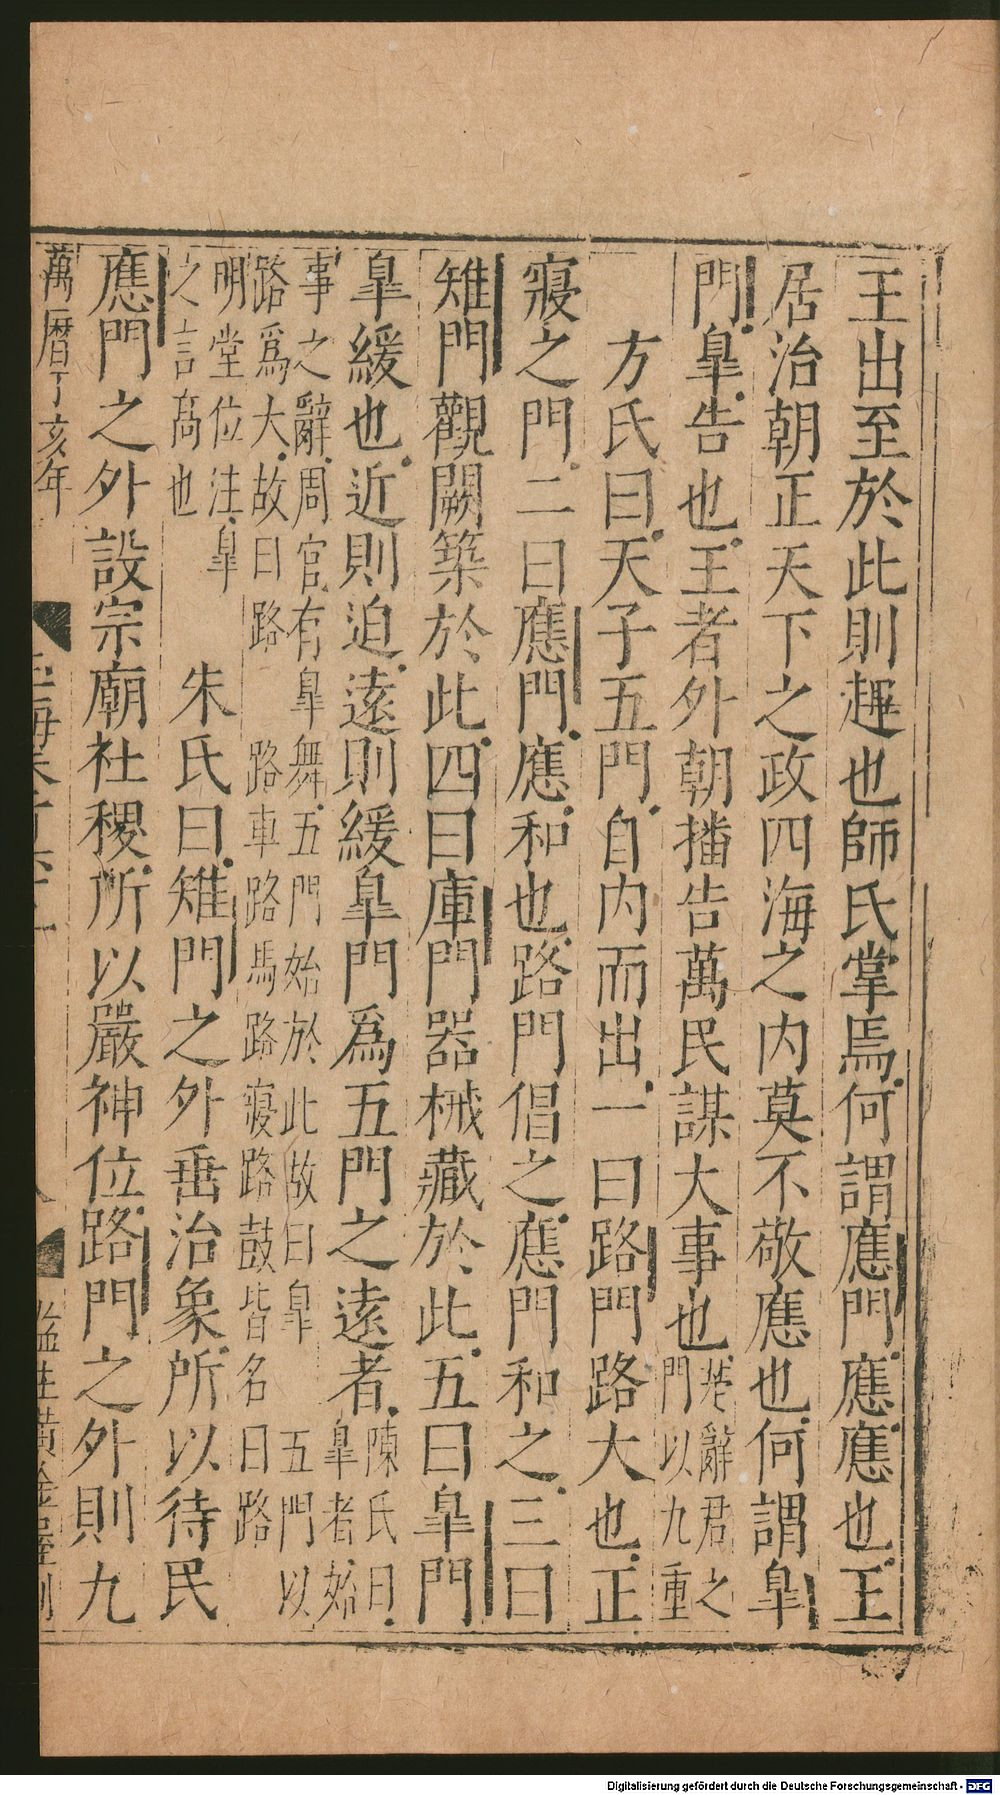 王出至於此則趣也師氏掌焉何謂應門應應也王
居治朝正天下之政四海之内莫不敬應也何謂皐
門皐告也王者外朝播告萬民謀大事也楚辭君之門以九重
方氏曰天子五門自内而出一曰路門路大也正
寢之門二曰應門應和也路門倡之應門和之三曰
雉門觀闕築於此四曰庫門器械藏於此五曰皐門
皐緩也近則迫遠則緩皐門爲五門之遠者陳氏曰皐者始
事之辭周官有皐舞五門始於此故曰皐五門以
路爲大故曰路路車路馬路寢路鼓皆名曰路
明堂位注皐
之言高也朱氏曰雉門之外垂治象所以待民
應門之外設宗廟社稷所以嚴神位路門之外則九
萬曆丁亥年 監生黃金璽刊
Digitalisierung gefördert durch die Deutsche Forschungsgemeinschaft - DFG